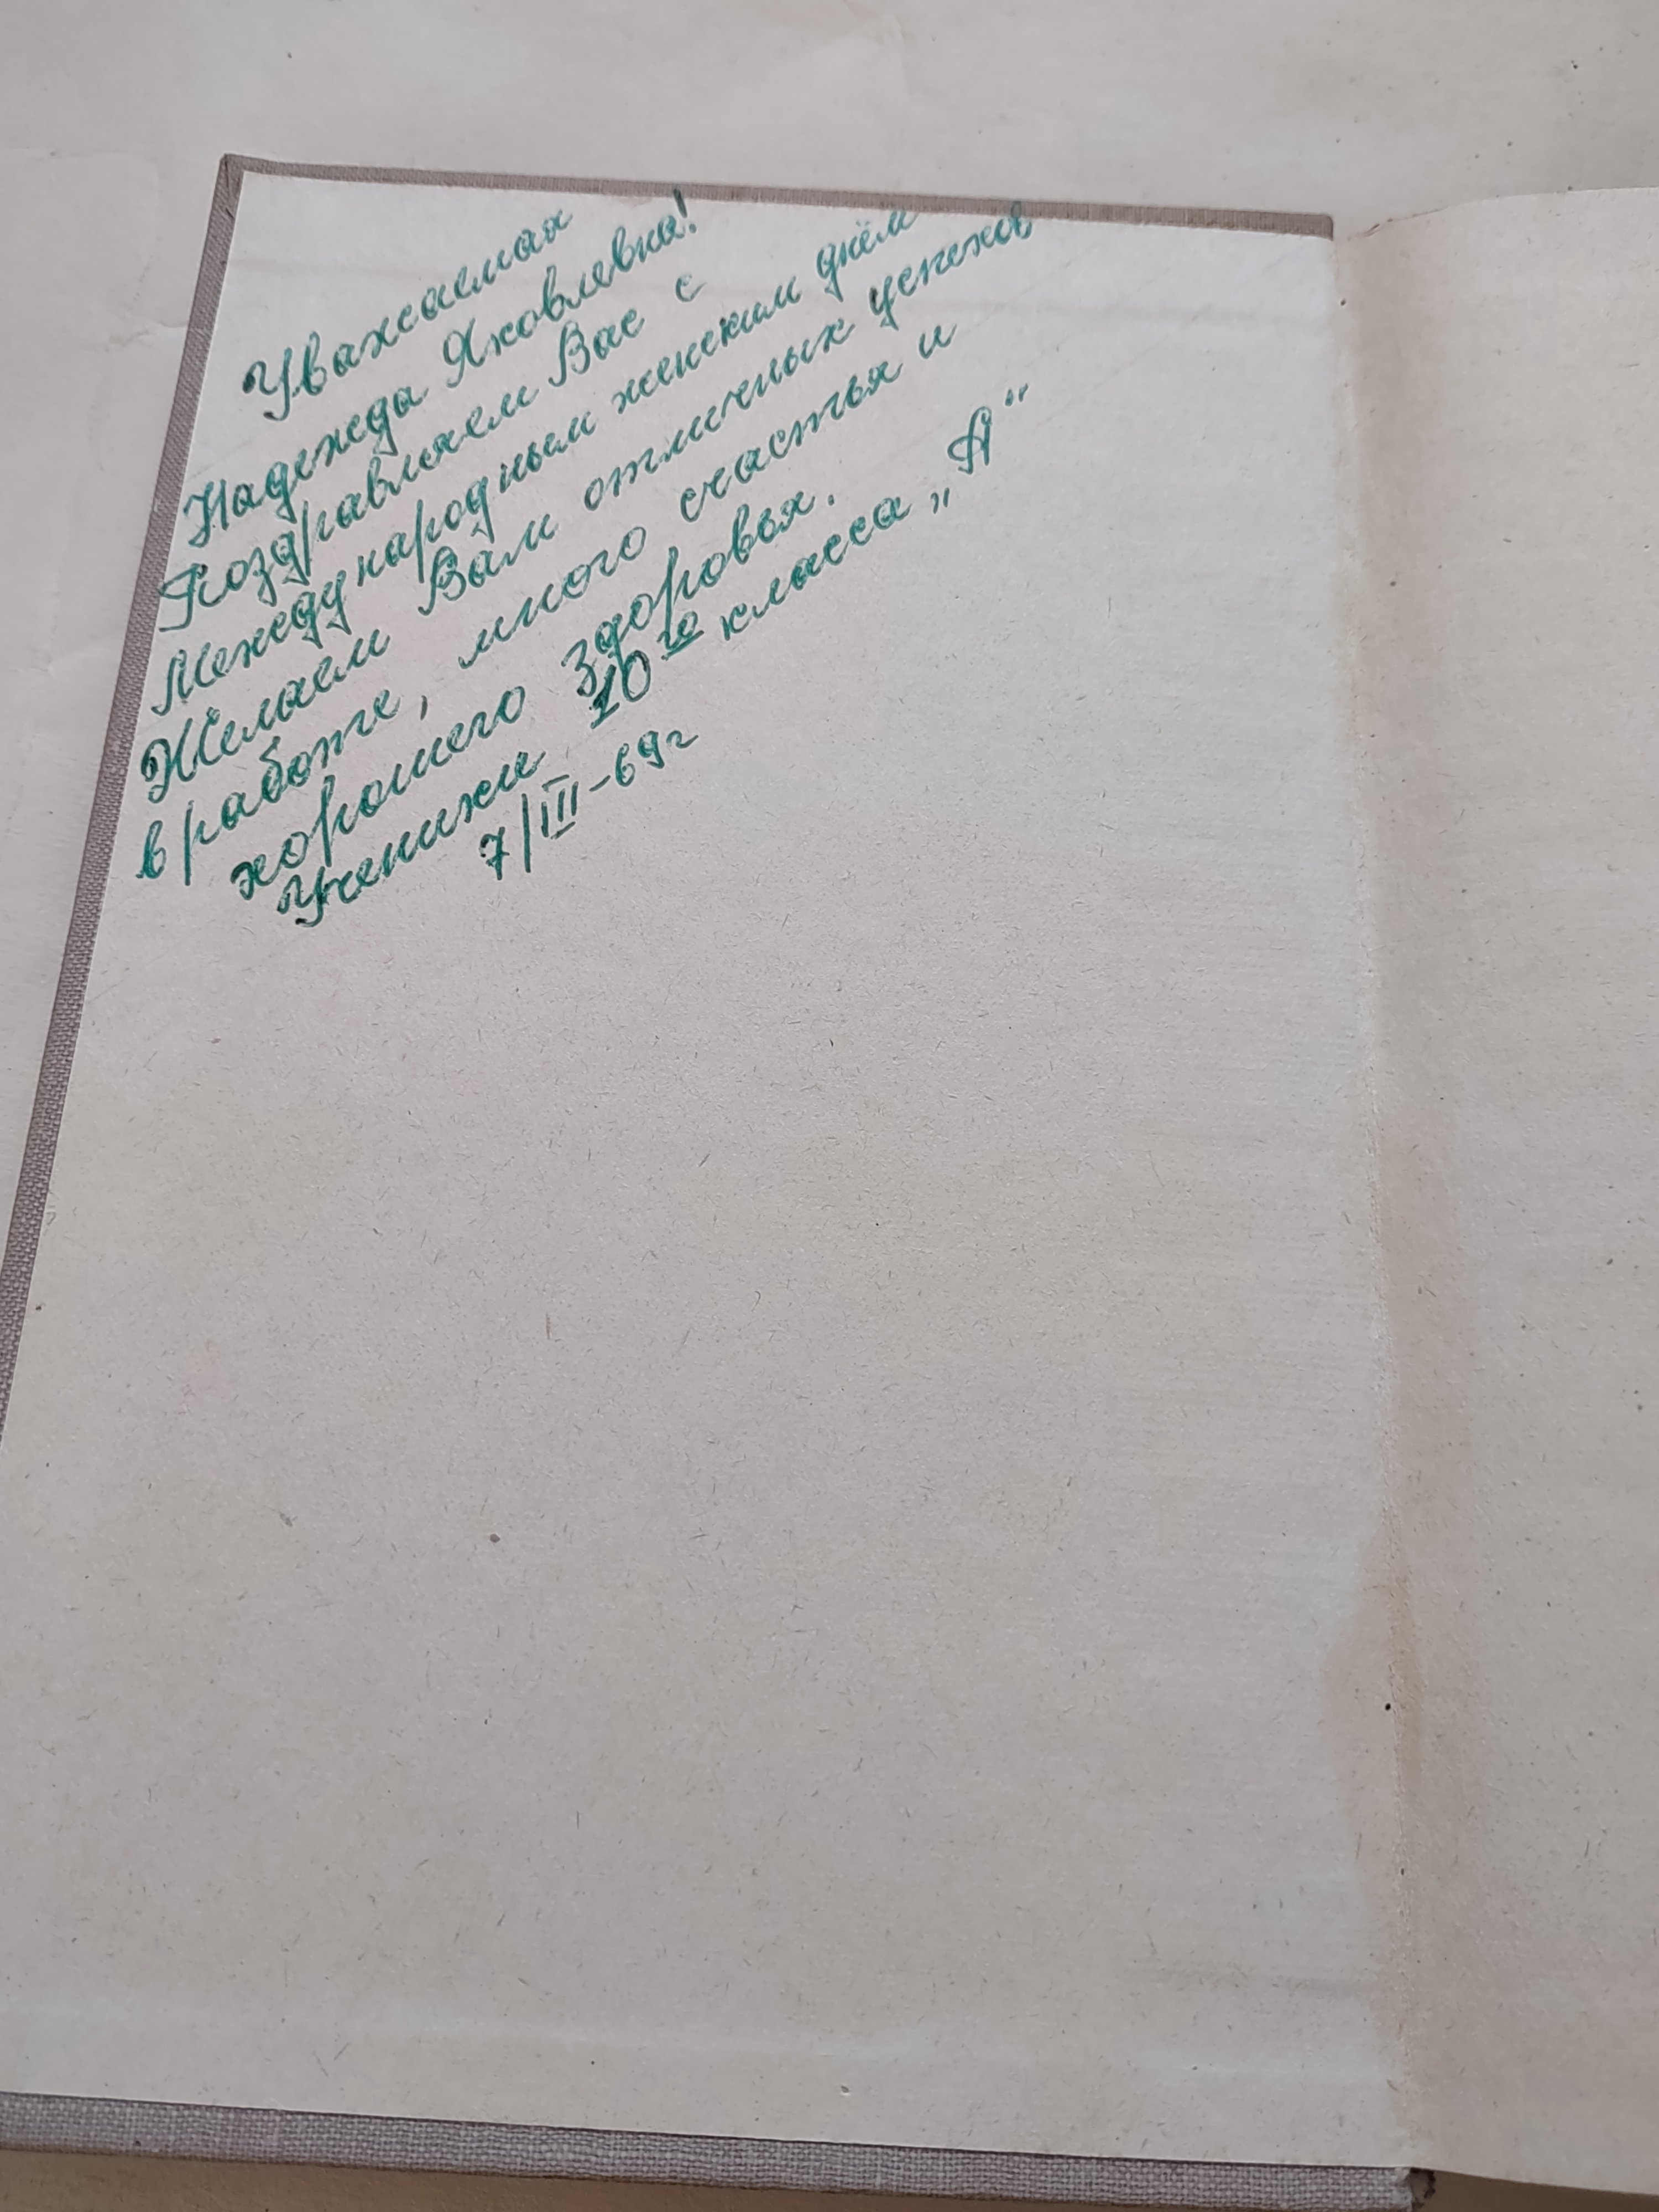 Уважаемая
Надежда Яковлевна!
Поздравляем Вас с
Международным женским днём
Желаем Вам отличных успехов
в работе, много счастья и
хорошего здоровья.
Ученики 10го класса „А“
7/III-69г